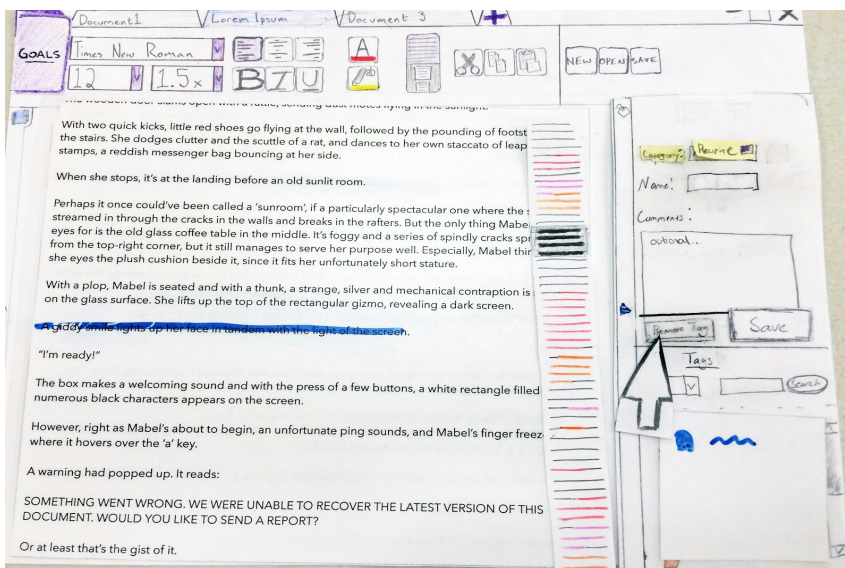 Document1 Lorem Ipsum Document 3
GOALS
Times New Roman
12 1.5x B I U A ab
NEW OPEN SAVE
The wooden door slams open with a rattle, sending dust motes flying in the sunlight.
With two quick kicks, little red shoes go flying at the wall, followed by the pounding of footst
the stairs. She dodges clutter and the scuttle of a rat, and dances to her own staccato of leap
stamps, a reddish messenger bag bouncing at her side.
When she stops, it's at the landing before an old sunlit room.
Perhaps it once could've been called a 'sunroom', if a particularly spectacular one where the
streamed in through the cracks in the walls and breaks in the rafters. But the only thing Mabe
eyes for is the old glass coffee table in the middle. It's foggy and a series of spindly cracks spr
from the top-right corner, but it still manages to serve her purpose well. Especially, Mabel thin
she eyes the plush cushion beside it, since it fits her unfortunately short stature.
With a plop, Mabel is seated and with a thunk, a strange, silver and mechanical contraption is
on the glass surface. She lifts up the top of the rectangular gizmo, revealing a dark screen.
A giddy smile lights up her face in tandem with the light of the screen.
"I'm ready!"
The box makes a welcoming sound and with the press of a few buttons, a white rectangle filled
numerous black characters appears on the screen.
However, right as Mabel's about to begin, an unfortunate ping sounds, and Mabel's finger freez
where it hovers over the 'a' key.
A warning had popped up. It reads:
SOMETHING WENT WRONG. WE WERE UNABLE TO RECOVER THE LATEST VERSION OF THIS
DOCUMENT. WOULD YOU LIKE TO SEND A REPORT?
Or at least that's the gist of it.
Category:
Name:
Comments:
optional...
Remove Tag Save
Tags
Search